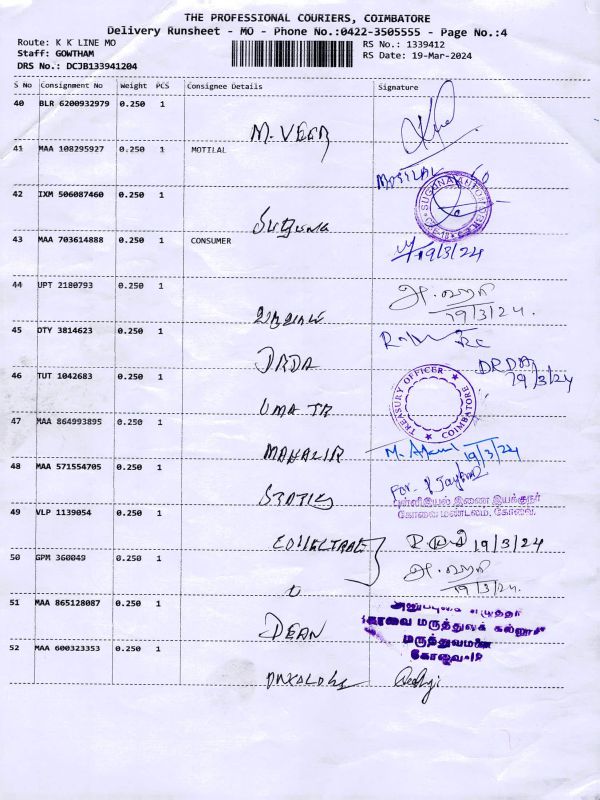 THE PROFESSIONAL COURIERS, COIMBATORE
Delivery Runsheet - MO - Phone No.:0422-3505555 - Page No.:4
Route: K K LINE MO
RS No.: 1339412
Staff: GOWTHAM
RS Date: 19-Mar-2024
DRS No.: DCJB133941204
S No Consignment No Weight PCS Consignee Details Signature
40 BLR 6200932979 0.250 1
M. VEER
41 MAA 108295927 0.250 1 MOTILAL
MOTILAL
42 IXM 506087460 0.250 1
43 MAA 703614888 0.250 1 CONSUMER
19/3/24
44 UPT 2180793 0.250 1
19/3/24.
45 OTY 3814623 0.250 1
DRDA
DRDA
19/3/24
46 TUT 1042683 0.250 1
UMA TR
TREASURY OFFICER COIMBATORE
47 MAA 864993895 0.250 1
19/3/24
48 MAA 571554705 0.250 1
For.
புள்ளியியல் இணை இயக்குநர்
கோவை மண்டலம், கோவை.
49 VLP 1139054 0.250 1
19/3/24
50 GPM 360049 0.250 1
19/3/24.
51 MAA 865128087 0.250 1
DEAN
கோவை மருத்துவக்
மருத்துவமனை
கோவை-18
52 MAA 600323353 0.250 1